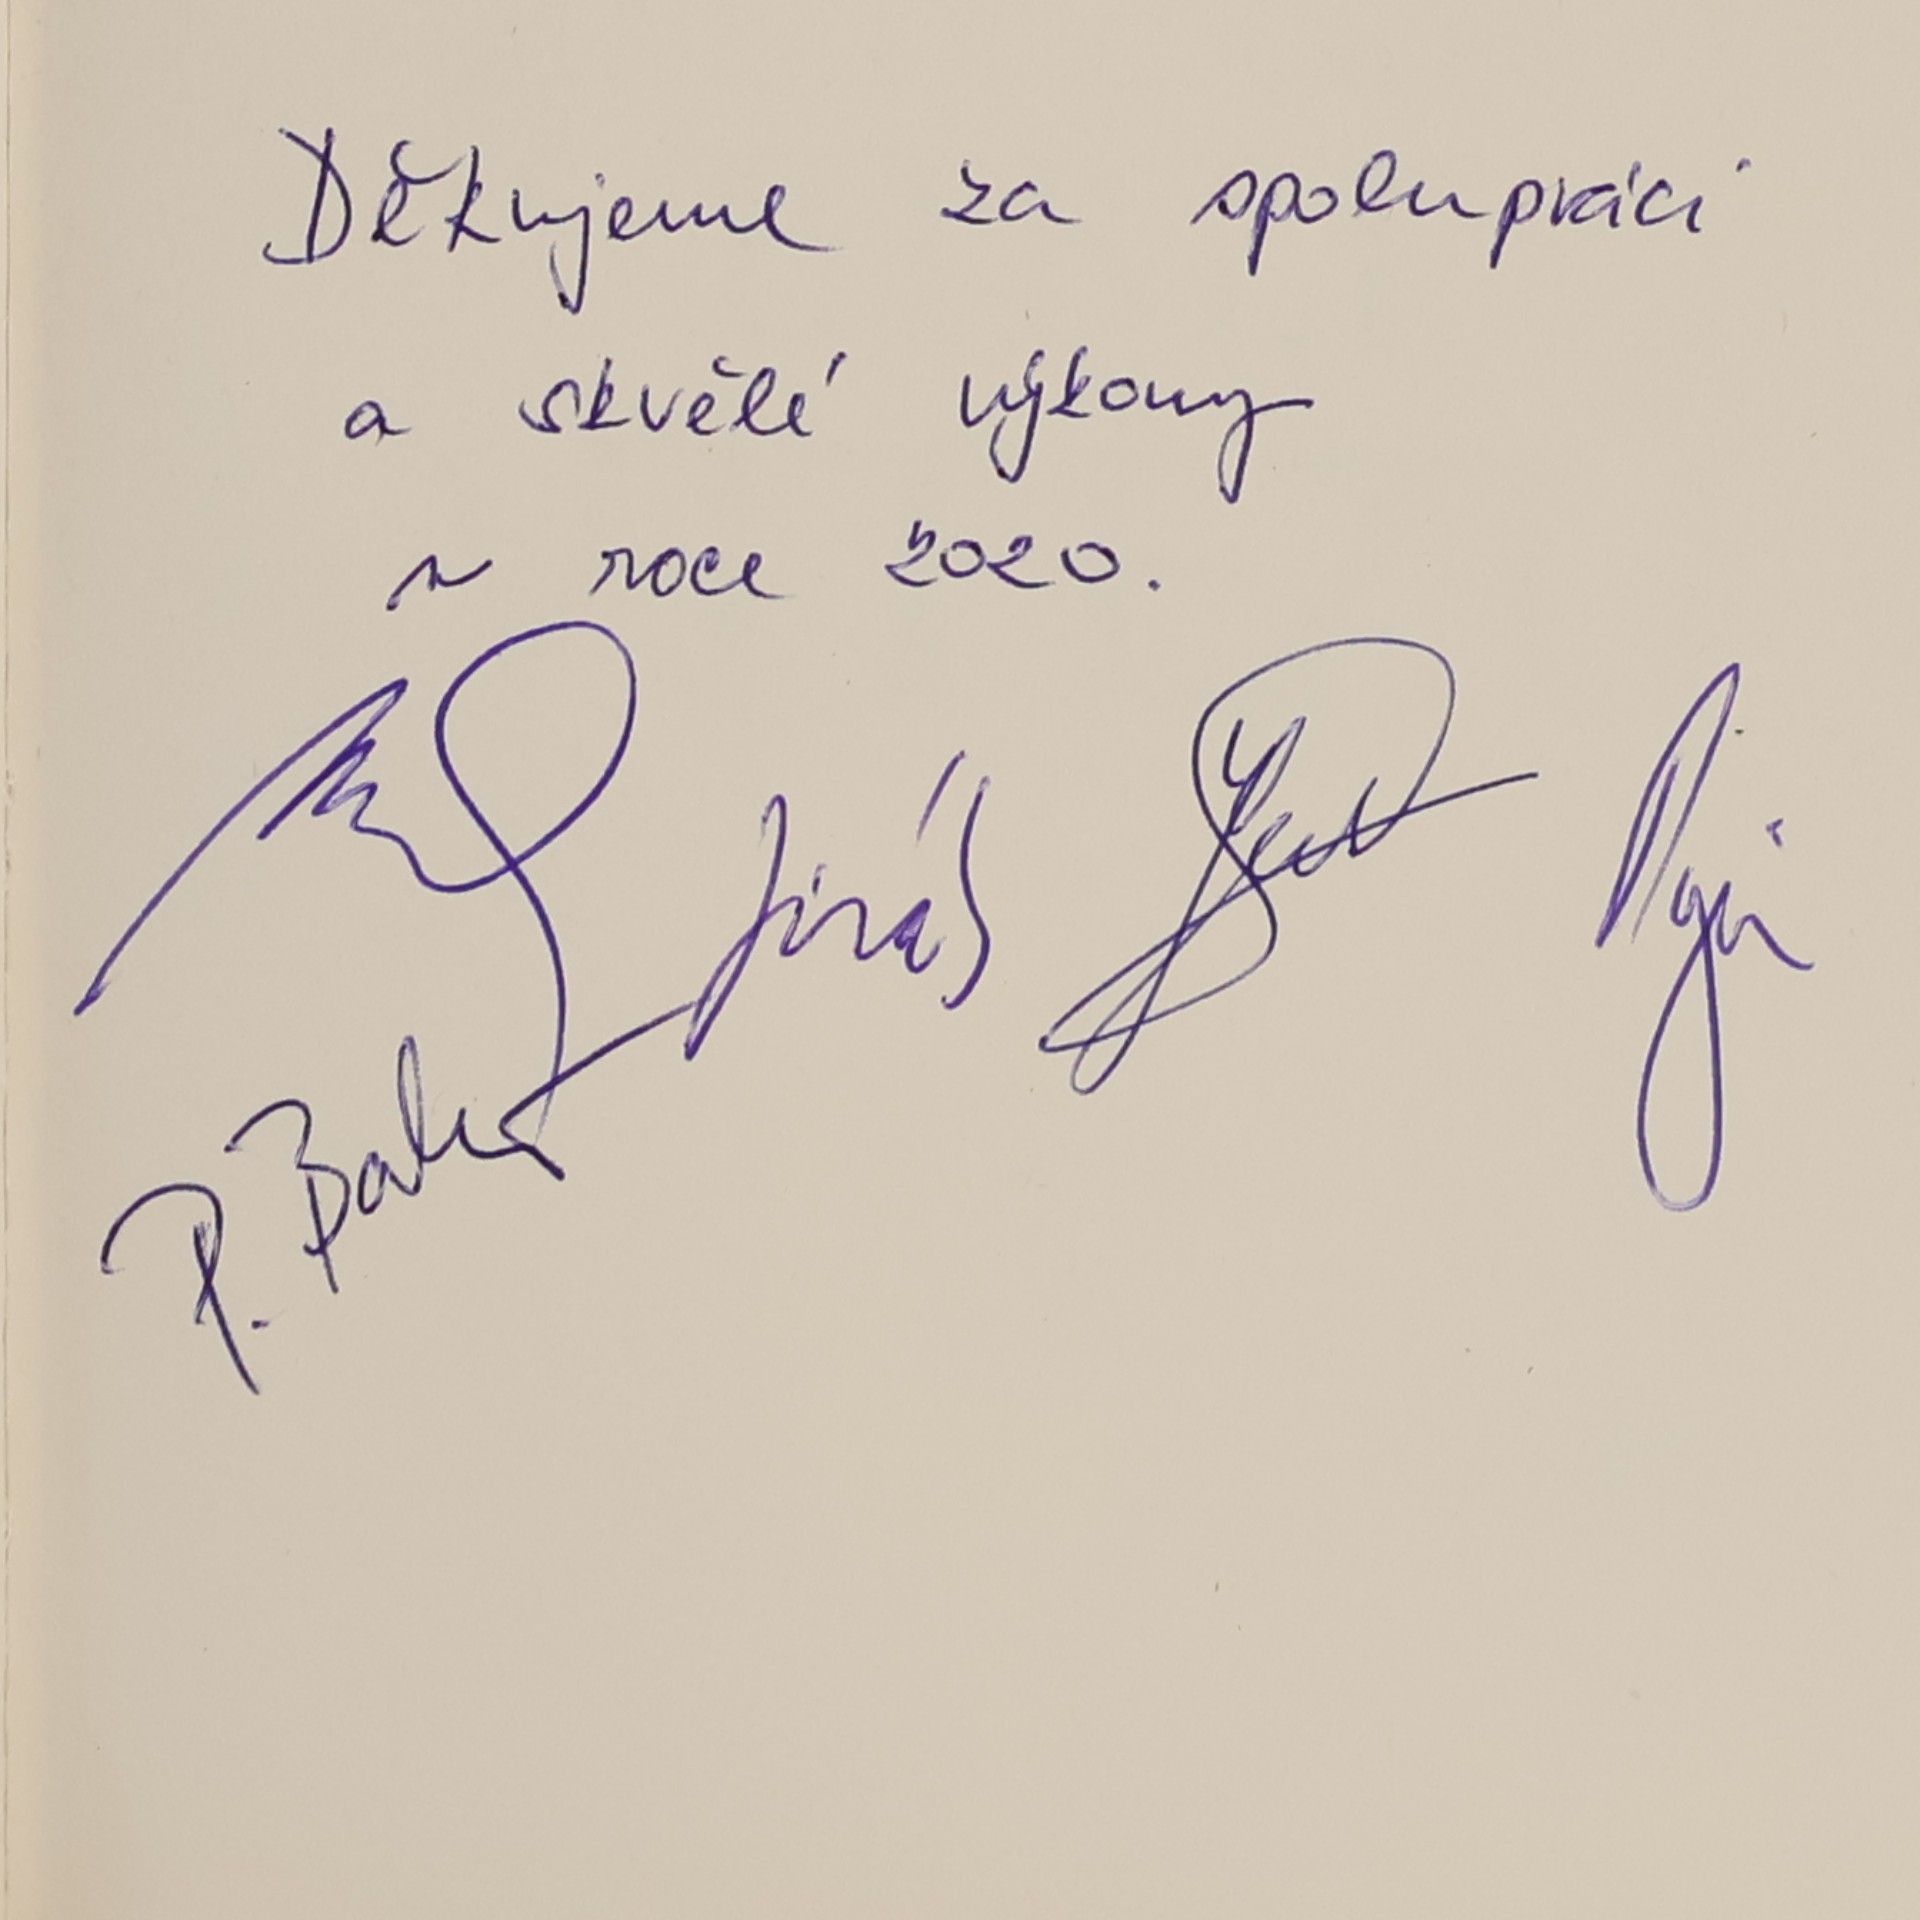 Děkujeme za spolupráci
a skvělé výkony
v roce 2020.
Jiráš
P.